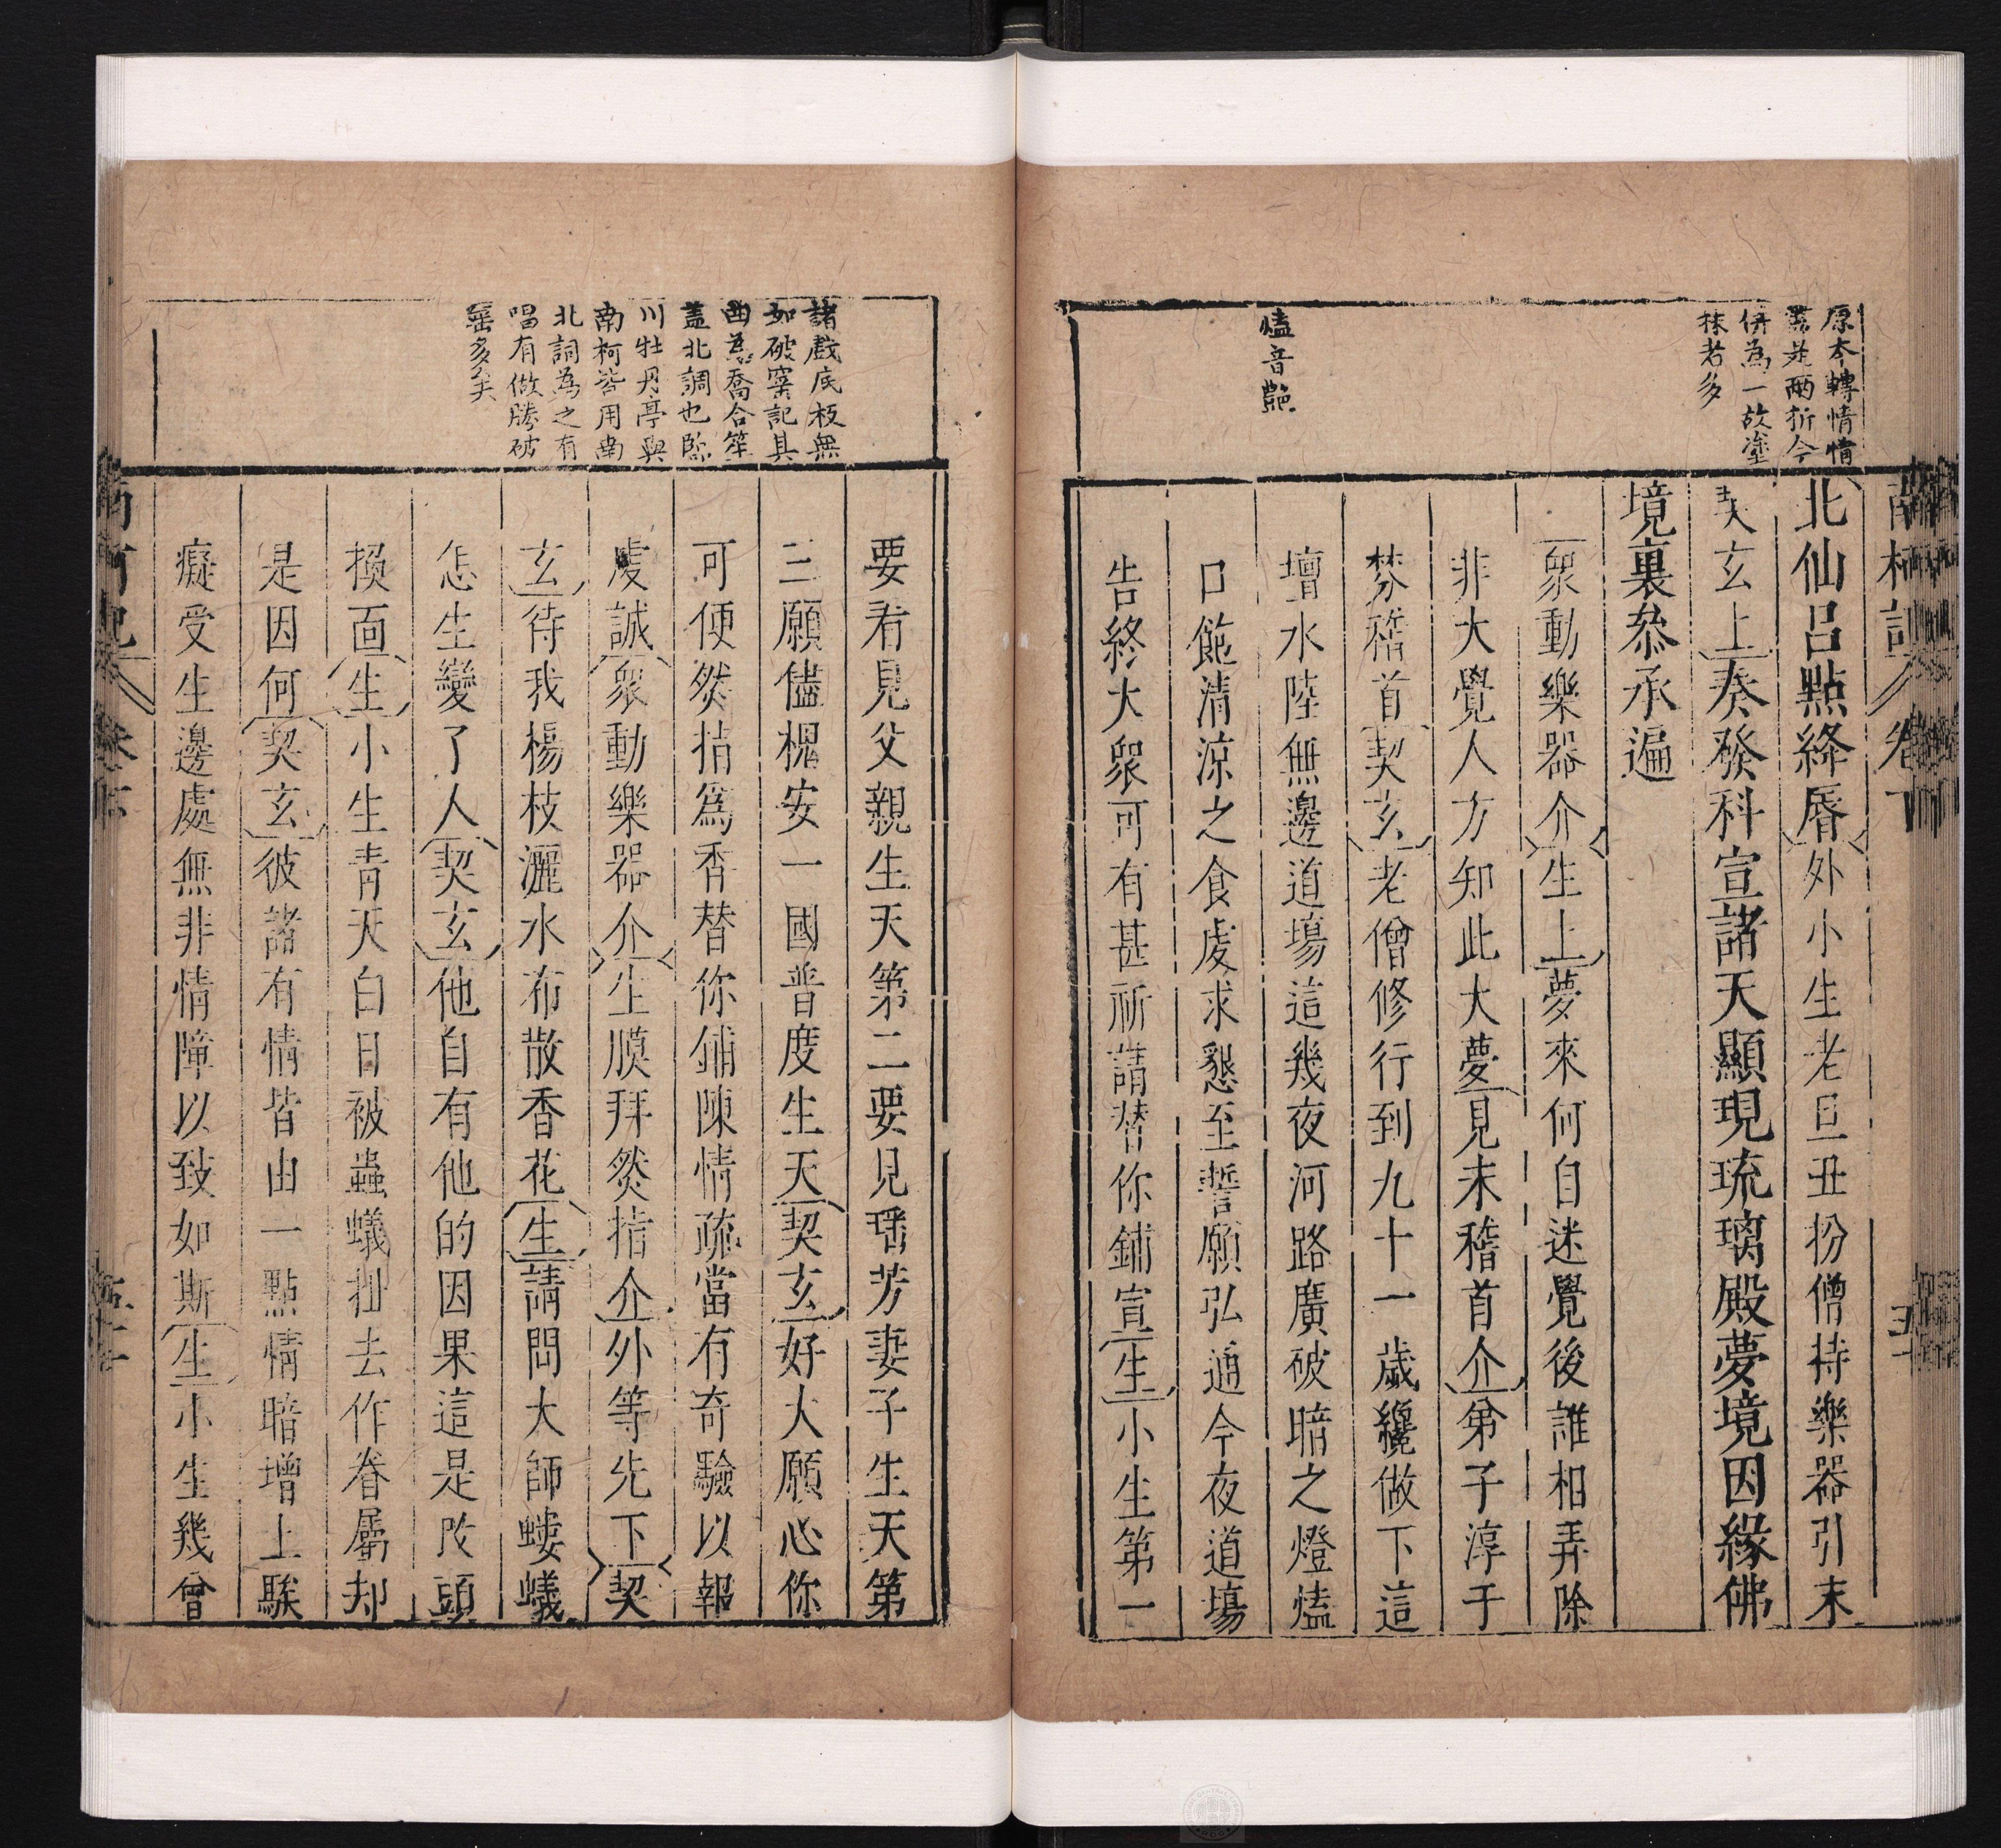 南柯記 卷下
原本轉情情
盡是兩折今
併為一故塗
抹者多
熆音艷
北仙呂點絳唇外小生老旦丑扮僧持樂器引末
契玄上奏發科宣諸天顯現琉璃殿夢境因緣佛
境裏叅承遍
衆動樂器介生上夢來何自迷覺後誰相弄除
非大覺人方知此大夢見末稽首介弟子淳于
棼稽首契玄老僧修行到九十一歲纔做下這
壇水陸無邊道場這幾夜河路廣破暗之燈熆
口飽清涼之食虔求懇至誓願弘通今夜道場
告終大衆可有甚祈請替你鋪宣生小生第一
諸戲底板無
如破窰記其
曲為喬合笙
蓋北調也臨
川牡丹亭與
南柯皆用南
北詞為之有
唱有做勝破
窰多矣
要看見父親生天第二要見瑤芳妻子生天第
三願儘槐安一國普度生天契玄好大願心你
可便然指爲香替你鋪陳情疏當有奇驗以報
虔誠衆動樂器介生膜拜然指介外等先下契
玄待我楊枝灑水布散香花生請問大師螻蟻
怎生變了人契玄他自有他的因果這是改頭
換面生小生青天白日被蟲蟻扯去作眷屬却
是因何契玄彼諸有情皆由一點情暗增上騃
癡受生邊處無非情障以致如斯生小生幾曾
南柯記 卷下